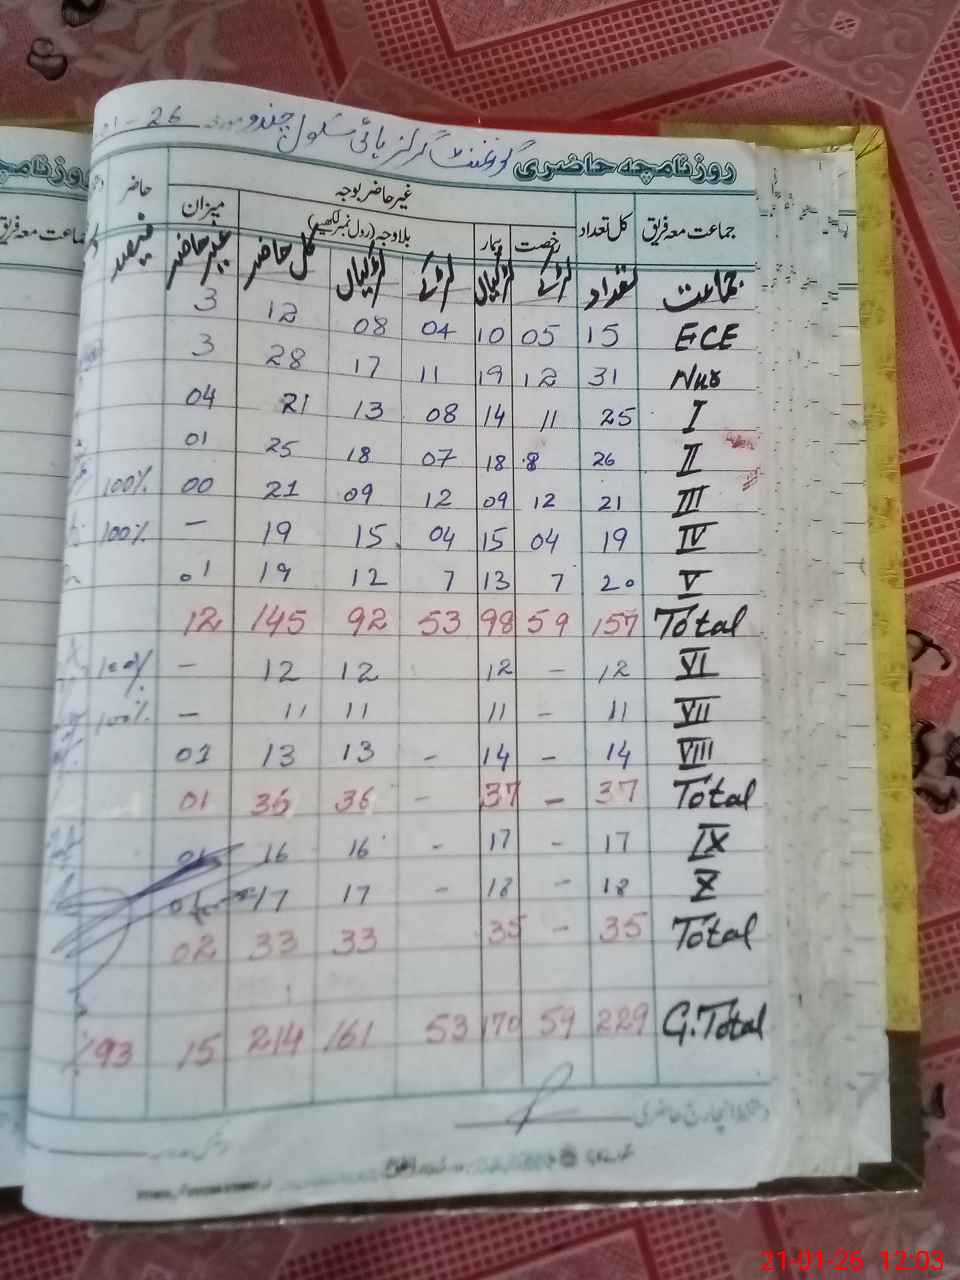 گورنمنٹ گرلز ہائی سکول چندو مورخہ 26 - 01
روزنامچہ حاضری
جماعت معہ فریق کل تعداد غیر حاضر بوجہ میزان حاضر
رخصت بیمار بلاوجہ (رول نمبر لکھیں)
جماعت تعداد لڑکے لڑکیاں لڑکے لڑکیاں کل حاضر غیر حاضر فیصد
ECE 15 05 10 04 08 12 3
Nur 31 12 19 11 17 28 3
I 25 11 14 08 13 21 04
II 26 8 18 07 18 25 01
III 21 12 09 12 09 21 00 100%
IV 19 04 15 04 15 19 – 100%
V 20 7 13 7 12 19 01
Total 157 59 98 53 92 145 12
VI 12 – 12 12 12 – 100%
VII 11 – 11 11 11 – 100%
VIII 14 – 14 – 13 13 01
Total 37 – 37 – 36 36 01
IX 17 – 17 - 16 16 01
X 18 – 18 - 17 17 01
Total 35 – 35 33 33 02
G.Total 229 59 170 53 161 214 15 %93
دستخط انچارج حاضری
21-01-26 12:03